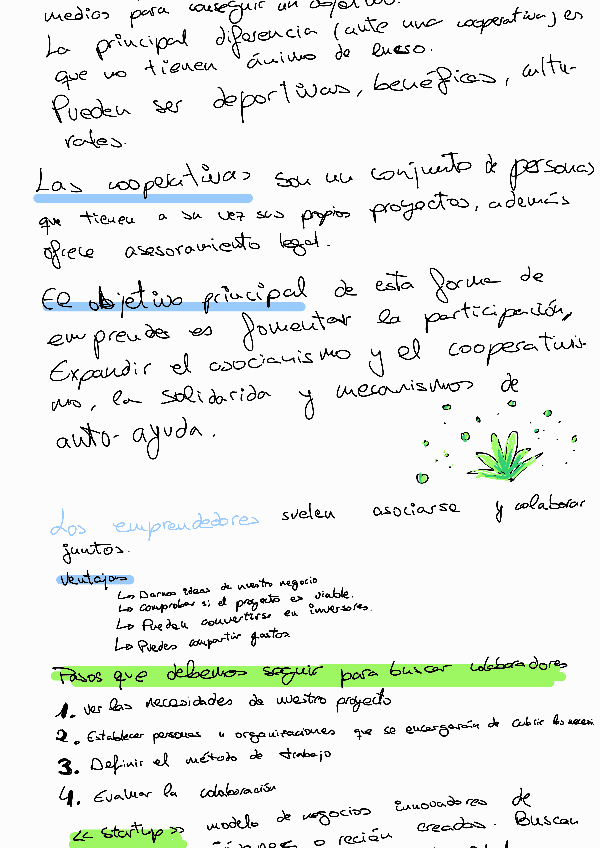 medios para conseguir un objetivo.
La principal diferencia (ante una cooperativa) es
que no tienen ánimo de lucro.
Pueden ser deportivas, benéficas, cultu-
rales.
Las cooperativas son un conjunto de personas
que tienen a su vez sus propios proyectos, además
ofrece asesoramiento legal.
El objetivo principal de esta forma de
emprendes es fomentar la participación,
Expandir el asocianismo y el cooperativis-
mo, la solidarida y mecanismos de
auto-ayuda.
Los emprendedores suelen asociarse y colaborar
juntos.
Ventajas
↳ Darnos ideas de nuestro negocio
↳ comprobar si el proyecto es viable.
↳ Pueden convertirse en inversores.
↳ Puedes compartir gastos
Pasos que debemos seguir para buscar colaboradores
1. Ver las necesidades de nuestro proyecto
2. Establecer personas u organizaciones que se encargarán de cubrir las neces.
3. Definir el método de trabajo
4. Evaluar la colaboración
<< Startup >> modelo de negocios innovadores de
o recién creados. Buscan